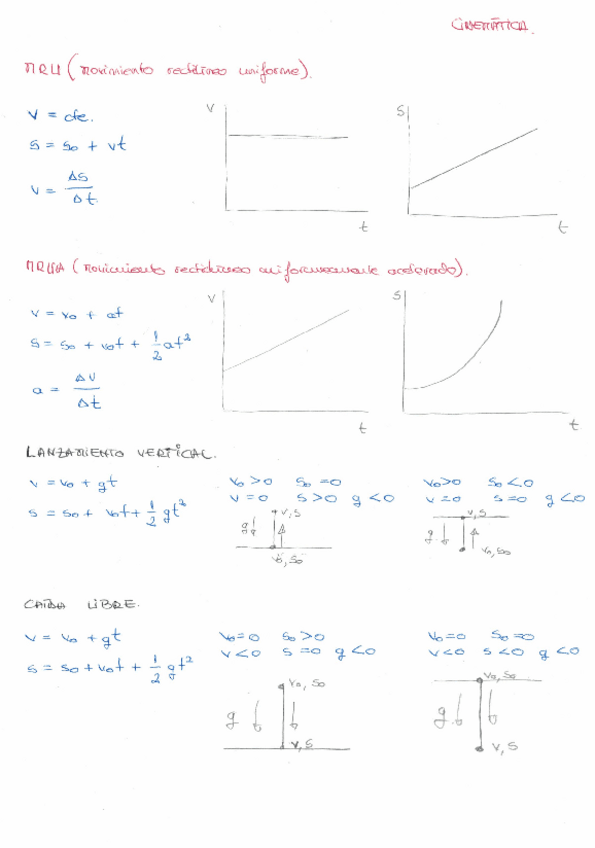 CINEMÁTICA.
MRU (Movimiento rectilíneo uniforme).
V = cte.
S = S₀ + vt
V = ΔS / Δt
V
t
S
t
MRUA (Movimiento rectilíneo uniformemente acelerado).
V = V₀ + at
S = S₀ + V₀t + 1/2 at²
a = ΔV / Δt
V
t
S
t
LANZAMIENTO VERTICAL.
V = V₀ + gt
S = S₀ + V₀t + 1/2 gt²
V₀ > 0 S₀ = 0
V = 0 S > 0 g < 0
V, S
g
V₀, S₀
V₀ > 0 S₀ < 0
V = 0 S = 0 g < 0
V, S
g
V₀, S₀
CAÍDA LIBRE.
V = V₀ + gt
S = S₀ + V₀t + 1/2 gt²
V₀ = 0 S₀ > 0
V < 0 S = 0 g < 0
V₀, S₀
g
V, S
V₀ = 0 S₀ = 0
V < 0 S < 0 g < 0
V₀, S₀
g
V, S